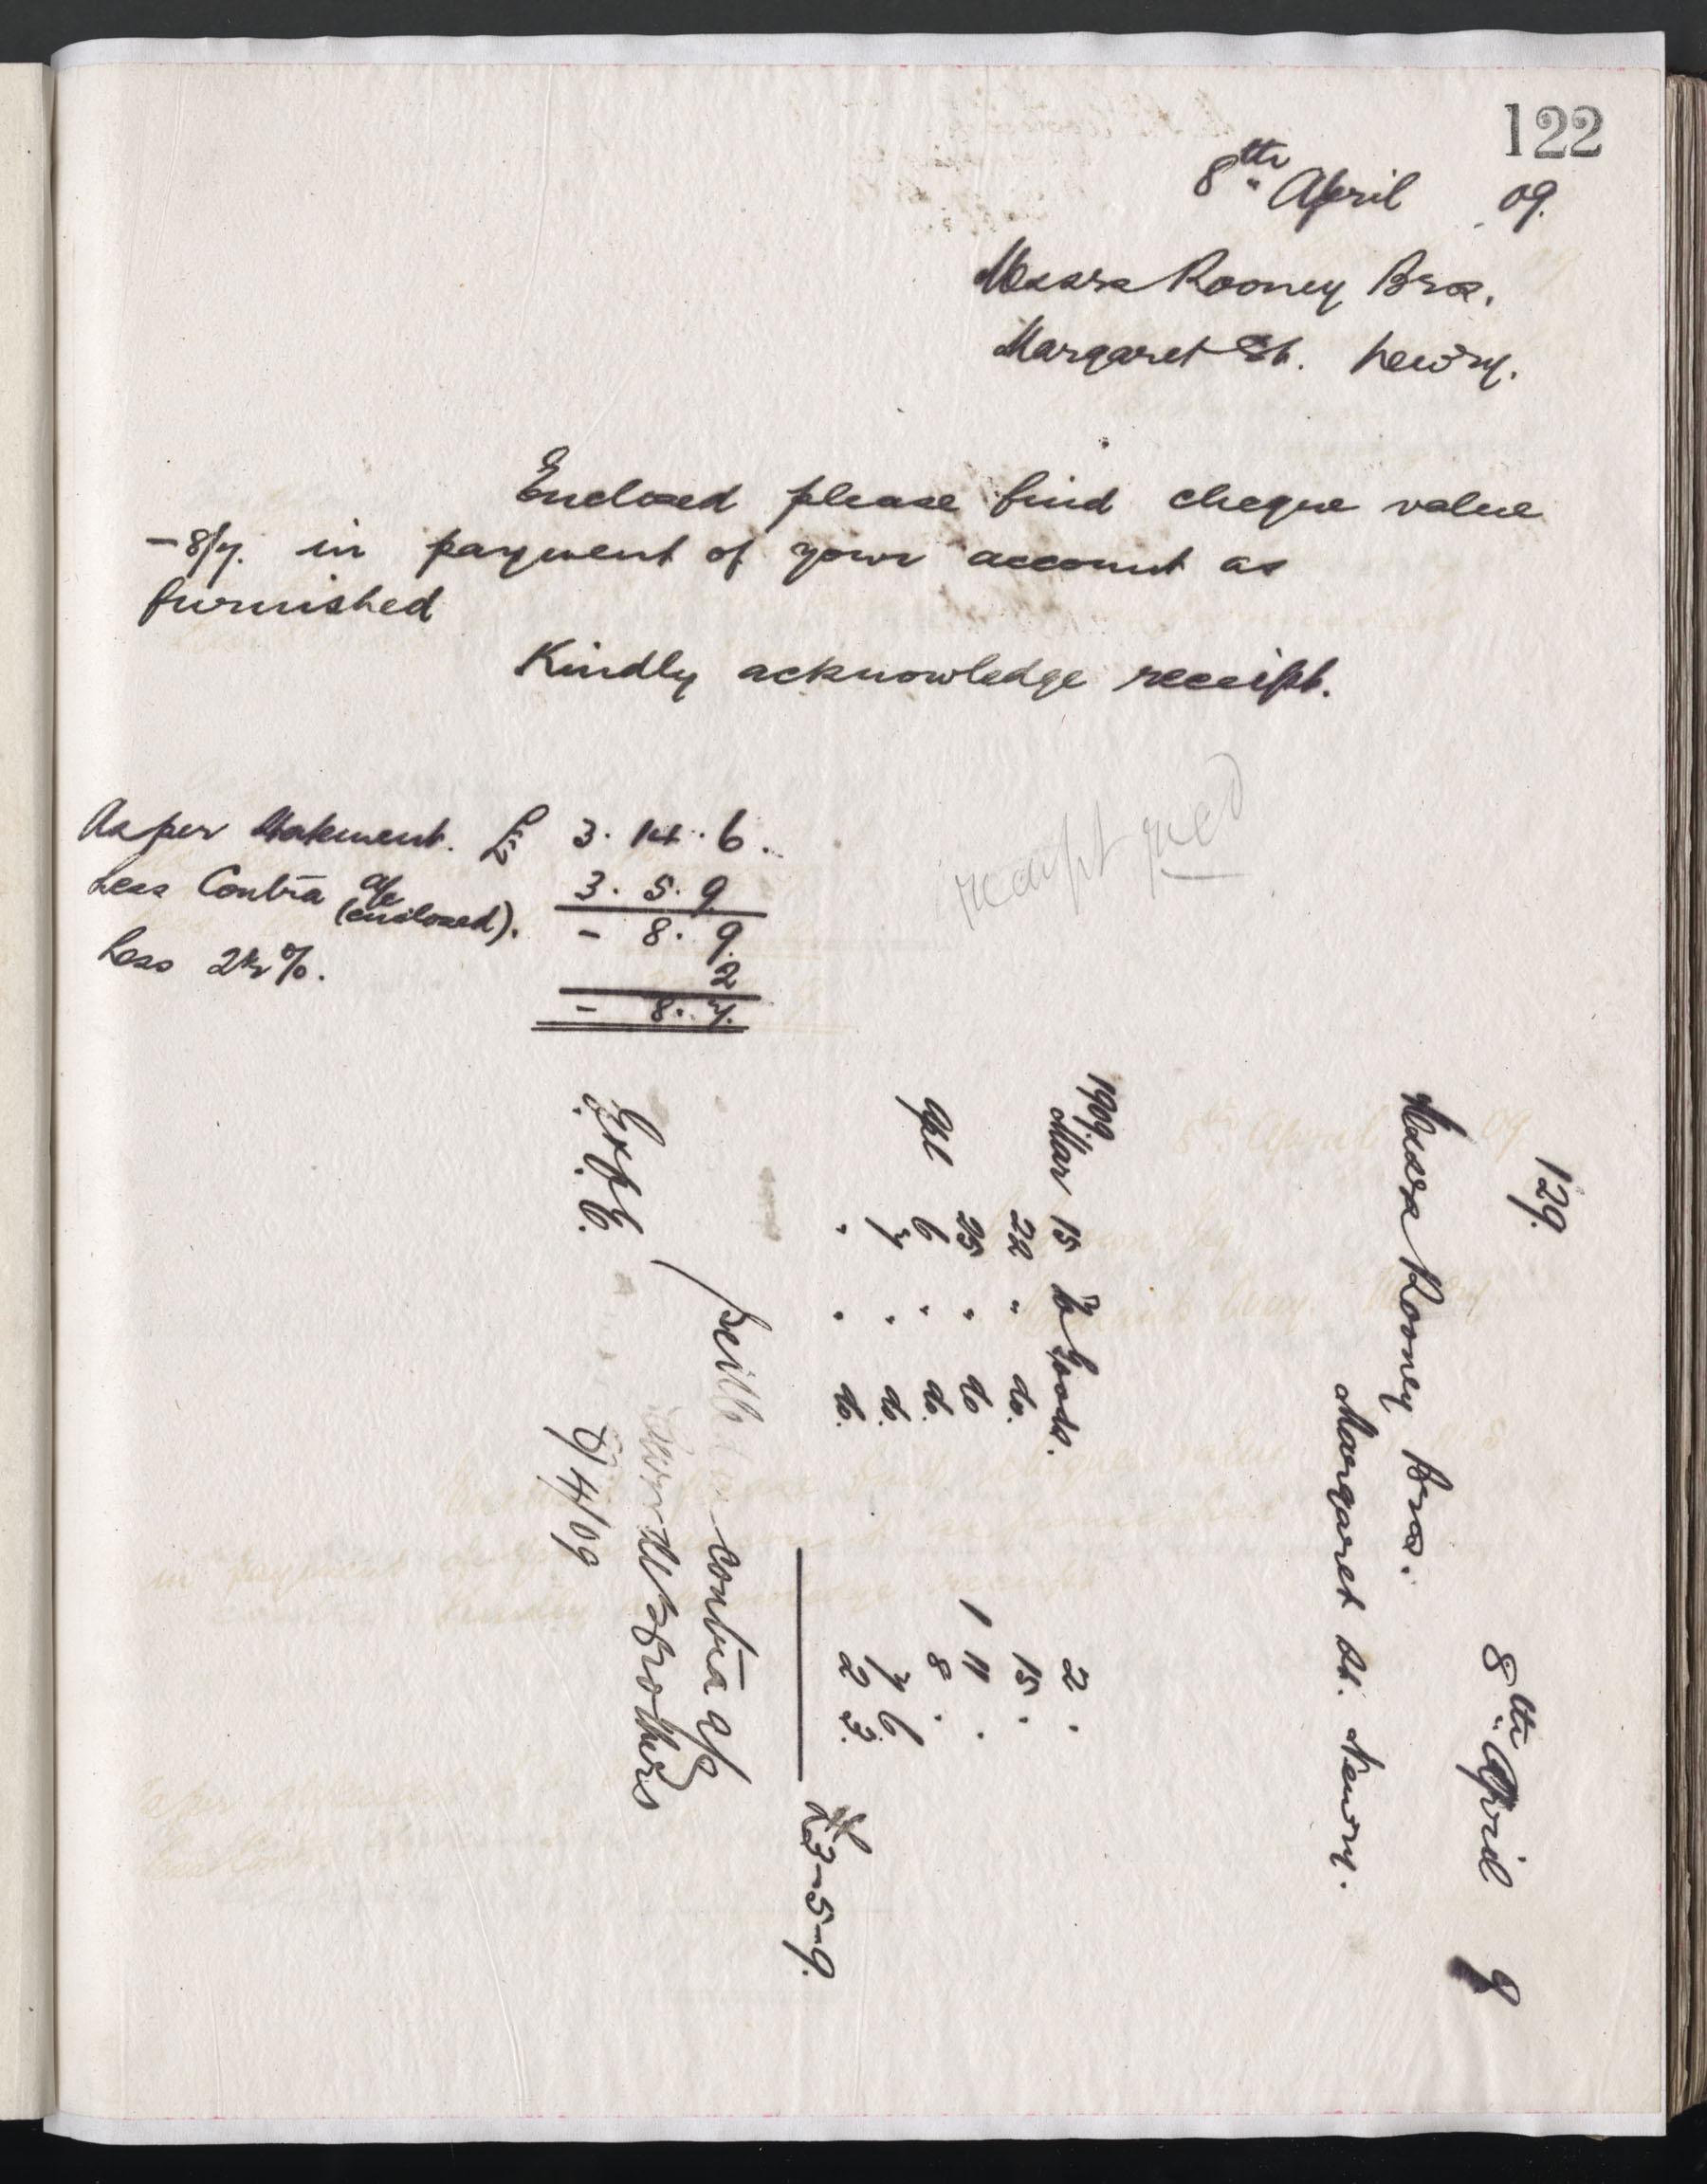 122
8th April 09.
Messrs Rooney Bros.
Margaret St. Newry.
Enclosed please find cheque value
- 8/7. in payment of your account as
furnished
Kindly acknowledge receipt.
As per Statement. £ 3. 14. 6.
Less Contra a/c (enclosed). 3. 5. 9
- 8. 9.
Less 2½%. 2
- 8. 7.
receipt recd
129.
8th April 9
Messrs Rooney Bros.
Margaret St. Newry.
1909 Mar 15 To Goods. 2 .
22 " do. 15 .
25 " do 1 11 .
Apl 6 " do. 8 .
7 " do. 7 6
" " do. 2 3.
£3-5-9.
Contra a/c
Brothers
E. & O. E.
8/4/09